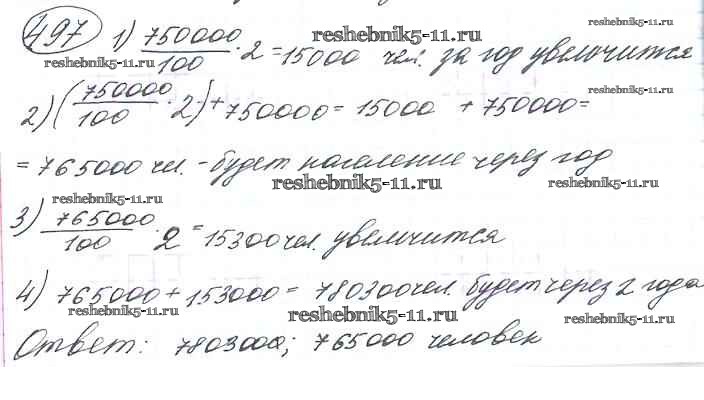 497 1) 750000/100 · 2 = 15000 чел. за год увеличится
2) (750000/100 · 2) + 750000 = 15000 + 750000 =
= 765000 чел. - будет население через год
3) 765000/100 · 2 = 15300 чел. увеличится
4) 765000 + 153000 = 780300 чел. будет через 2 года
Ответ: 7803000; 765000 человек
reshebnik5-11.ru
reshebnik5-11.ru
reshebnik5-11.ru
reshebnik5-11.ru
reshebnik5-11.ru
reshebnik5-11.ru
reshebnik5-11.ru
reshebnik5-11.ru
reshebnik5-11.ru
reshebnik5-11.ru